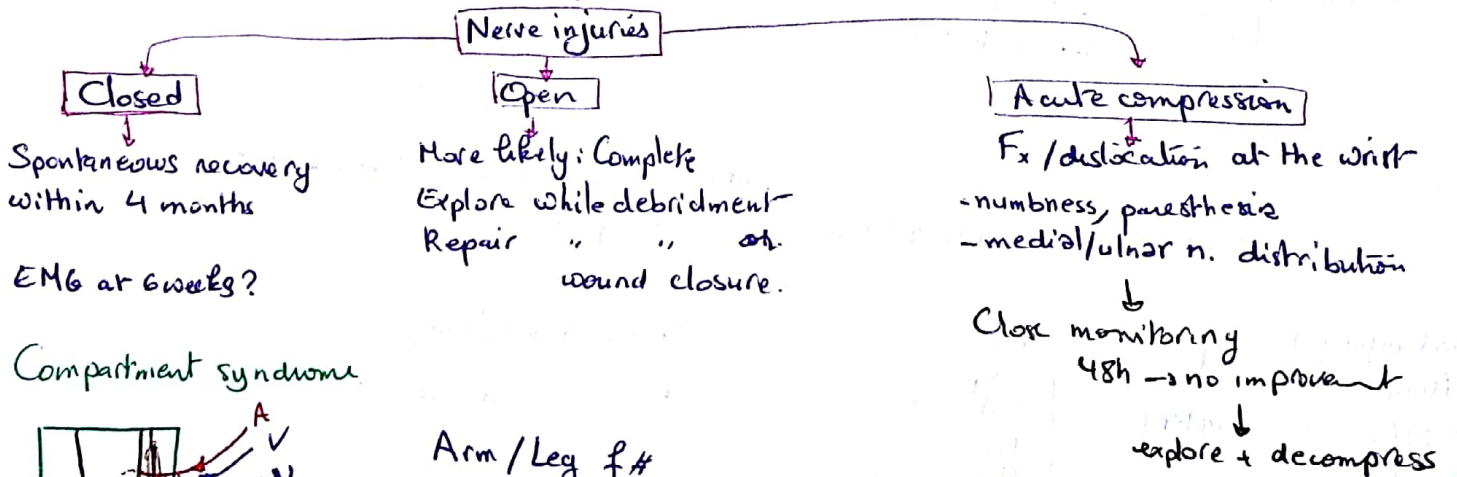 Nerve injuries
Closed
Spontaneous recovery
within 4 months
EMG at 6 weeks?
Open
More likely: Complete
Explore while debridment
Repair " " or
wound closure.
Acute compression
Fx/dislocation at the wrist
- numbness, paresthesia
- medial/ulnar n. distribution
Close monitoring
48h → no improvent
explore + decompress
Compartment syndrome
A
V
N
Arm/Leg f#